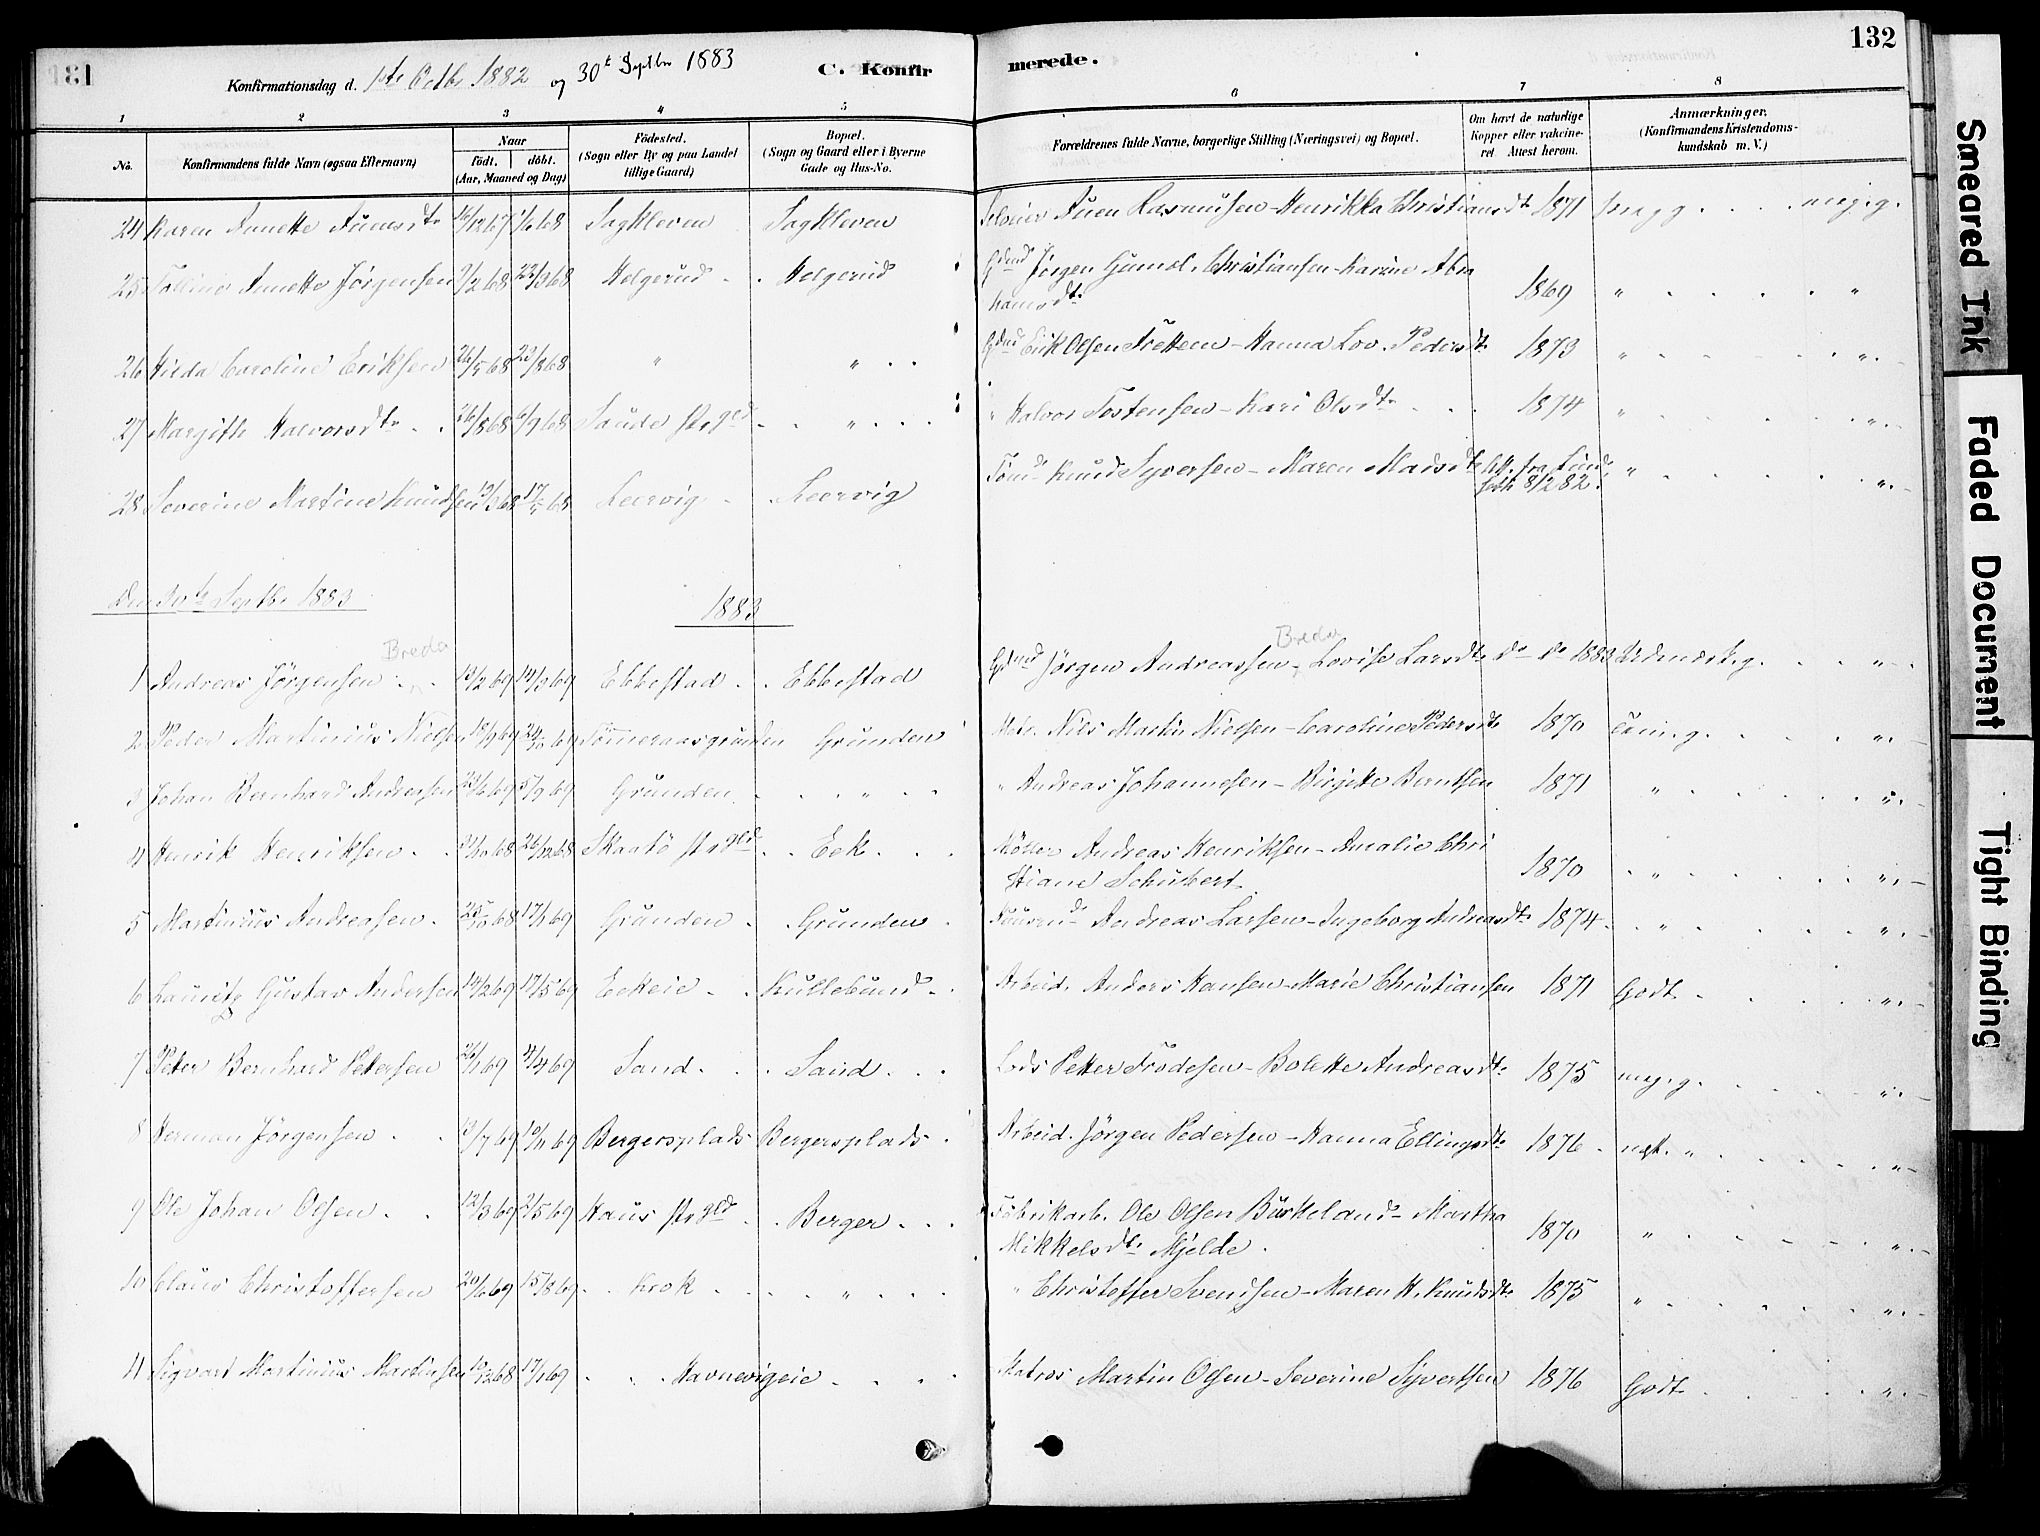 132
Konfirmationsdag d. 1ste Octbr 1882 og 30te Septbr 1883 C. Konfirmerede.
1 2 3 4 5 6 7 8
No. Konfirmandens fulde Navn (ogsaa Efternavn) Naar født. døbt. (Aar, Maaned og Dag) Fødested. (Sogn eller By og paa Landet tillige Gaard) Bopæl. (Sogn og Gaard eller i Byerne Gade og Hus-No. Forældrenes fulde Navne, borgerlige Stilling (Næringsvei) og Bopæl. Om havt de naturlige Kopper eller vakcineret Attest herom. Anmærkninger. (Konfirmandens Kristendomskundskab m. V.)
24 Karen Anette 16/12 67 1/6 68 Sagkleven Sagkleven Rasmusen - Henrikka Christiansdtr 1871 meg. g.
25 Anette Jørgensen 9/2 68 22/3 68 Helgerud Helgerud Gdmd Jørgen Gunol. Christiansen - Karine Abra
hamsdtr 1869 " "
26 Hilda Caroline Eriksen 26/5 68 23/8 68 " " Gdmd Erik Olsen - Hanna Lov. Pedersdtr 1873 " "
27 Margith Halvorsdtr 26/8 68 6/9 68 Saude Prgld " " Halvor Tostensen - Kari Olsdtr 1874 " "
28 Severine Martine Knudsen 13/3 68 17/5 68 Leervig Leervig Tømd Knud Syversen - Maren Madsdtr Att. fra
8/2 82. " "
Den 30te Septbr 1883 1883
Breda Breda
1 Andreas Jørgensen 13/2 69 14/3 69 Ebbestad Ebbestad Gdmd Jørgen Andreassen - Lovise Larsdtr do do 1883 Udmærk. g. "
2 Peder Martinius Nielsen 18/9 69 24/10 69 Tømeraasgrunden Grunden Matr. Nils Martin Nielsen - Caroline Pedersdtr 1870 "
3 Johan Bernhard Andersen 23/6 69 5/9 69 Grunden " " Andreas Johannesen - Birgitte Berntsen 1871 " "
4 Henrik Henriksen 31/10 68 26/12 68 Skaatø Prgld Eek Møller Andreas Henriksen - Amalie Chri
stiane Schubert 1870 " "
5 Martinius Andreasen 25/10 68 17/1 69 Grunden Grunden Andreas Larsen - Ingeborg Andreasdtr 1874 " "
6 Lauritz Gustav Andersen 14/2 69 17/5 69 Eekeie Kullebund Arbeid. Anders Hansen - Marie Christiansen 1871 Godt "
7 Peter Bernhard Petersen 26/1 69 4/4 69 Sand Sand Lods Petter Frodesen - Bolette Andreasdtr 1875 meg. g. "
8 Herman Jørgensen 13/7 69 10/11 69 Bergersplads Bergersplads Arbeid. Jørgen Pedersen - Hanna Ellingsdtr 1876 " "
9 Ole Johan Olsen 12/3 69 2/5 69 Haus Prgld Berger Fabrikarb. Ole Olsen Burkeland - Martha
Mikkelsdtr Mjelde 1870 " "
10 Claus Christoffersen 20/6 69 15/8 69 Krok " " Christoffer Svendsen - Maren H. Knudsdtr 1875 " "
11 Sigvart Martinius Martinsen 10/12 68 17/1 69 Havnevigeie Matros Martin Olsen - Severine Syvertsen 1876 Godt "
Smeared Ink
Faded Document
Tight Binding